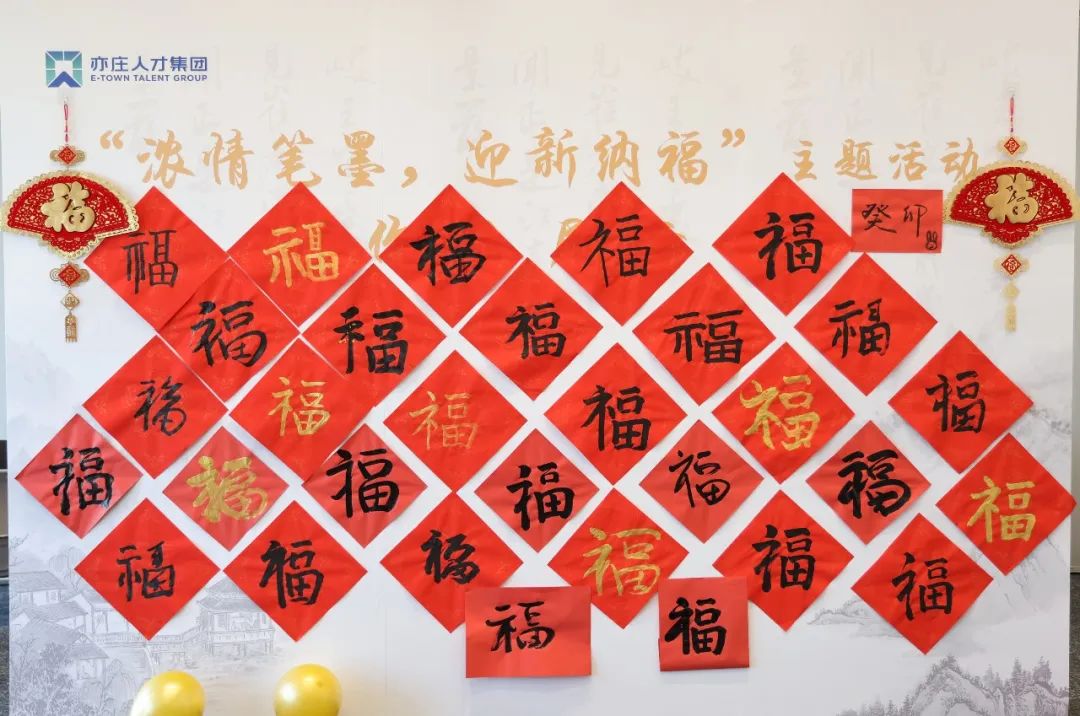 亦庄人才集团
E-TOWN TALENT GROUP
“浓情笔墨，迎新纳福”主题活动
福 福
福 福 福 福 福 癸卯
福 福 福 福 福
福 福 福 福 福 福
福 福 福 福 福 福 福
福 福 福 福 福 福
福 福